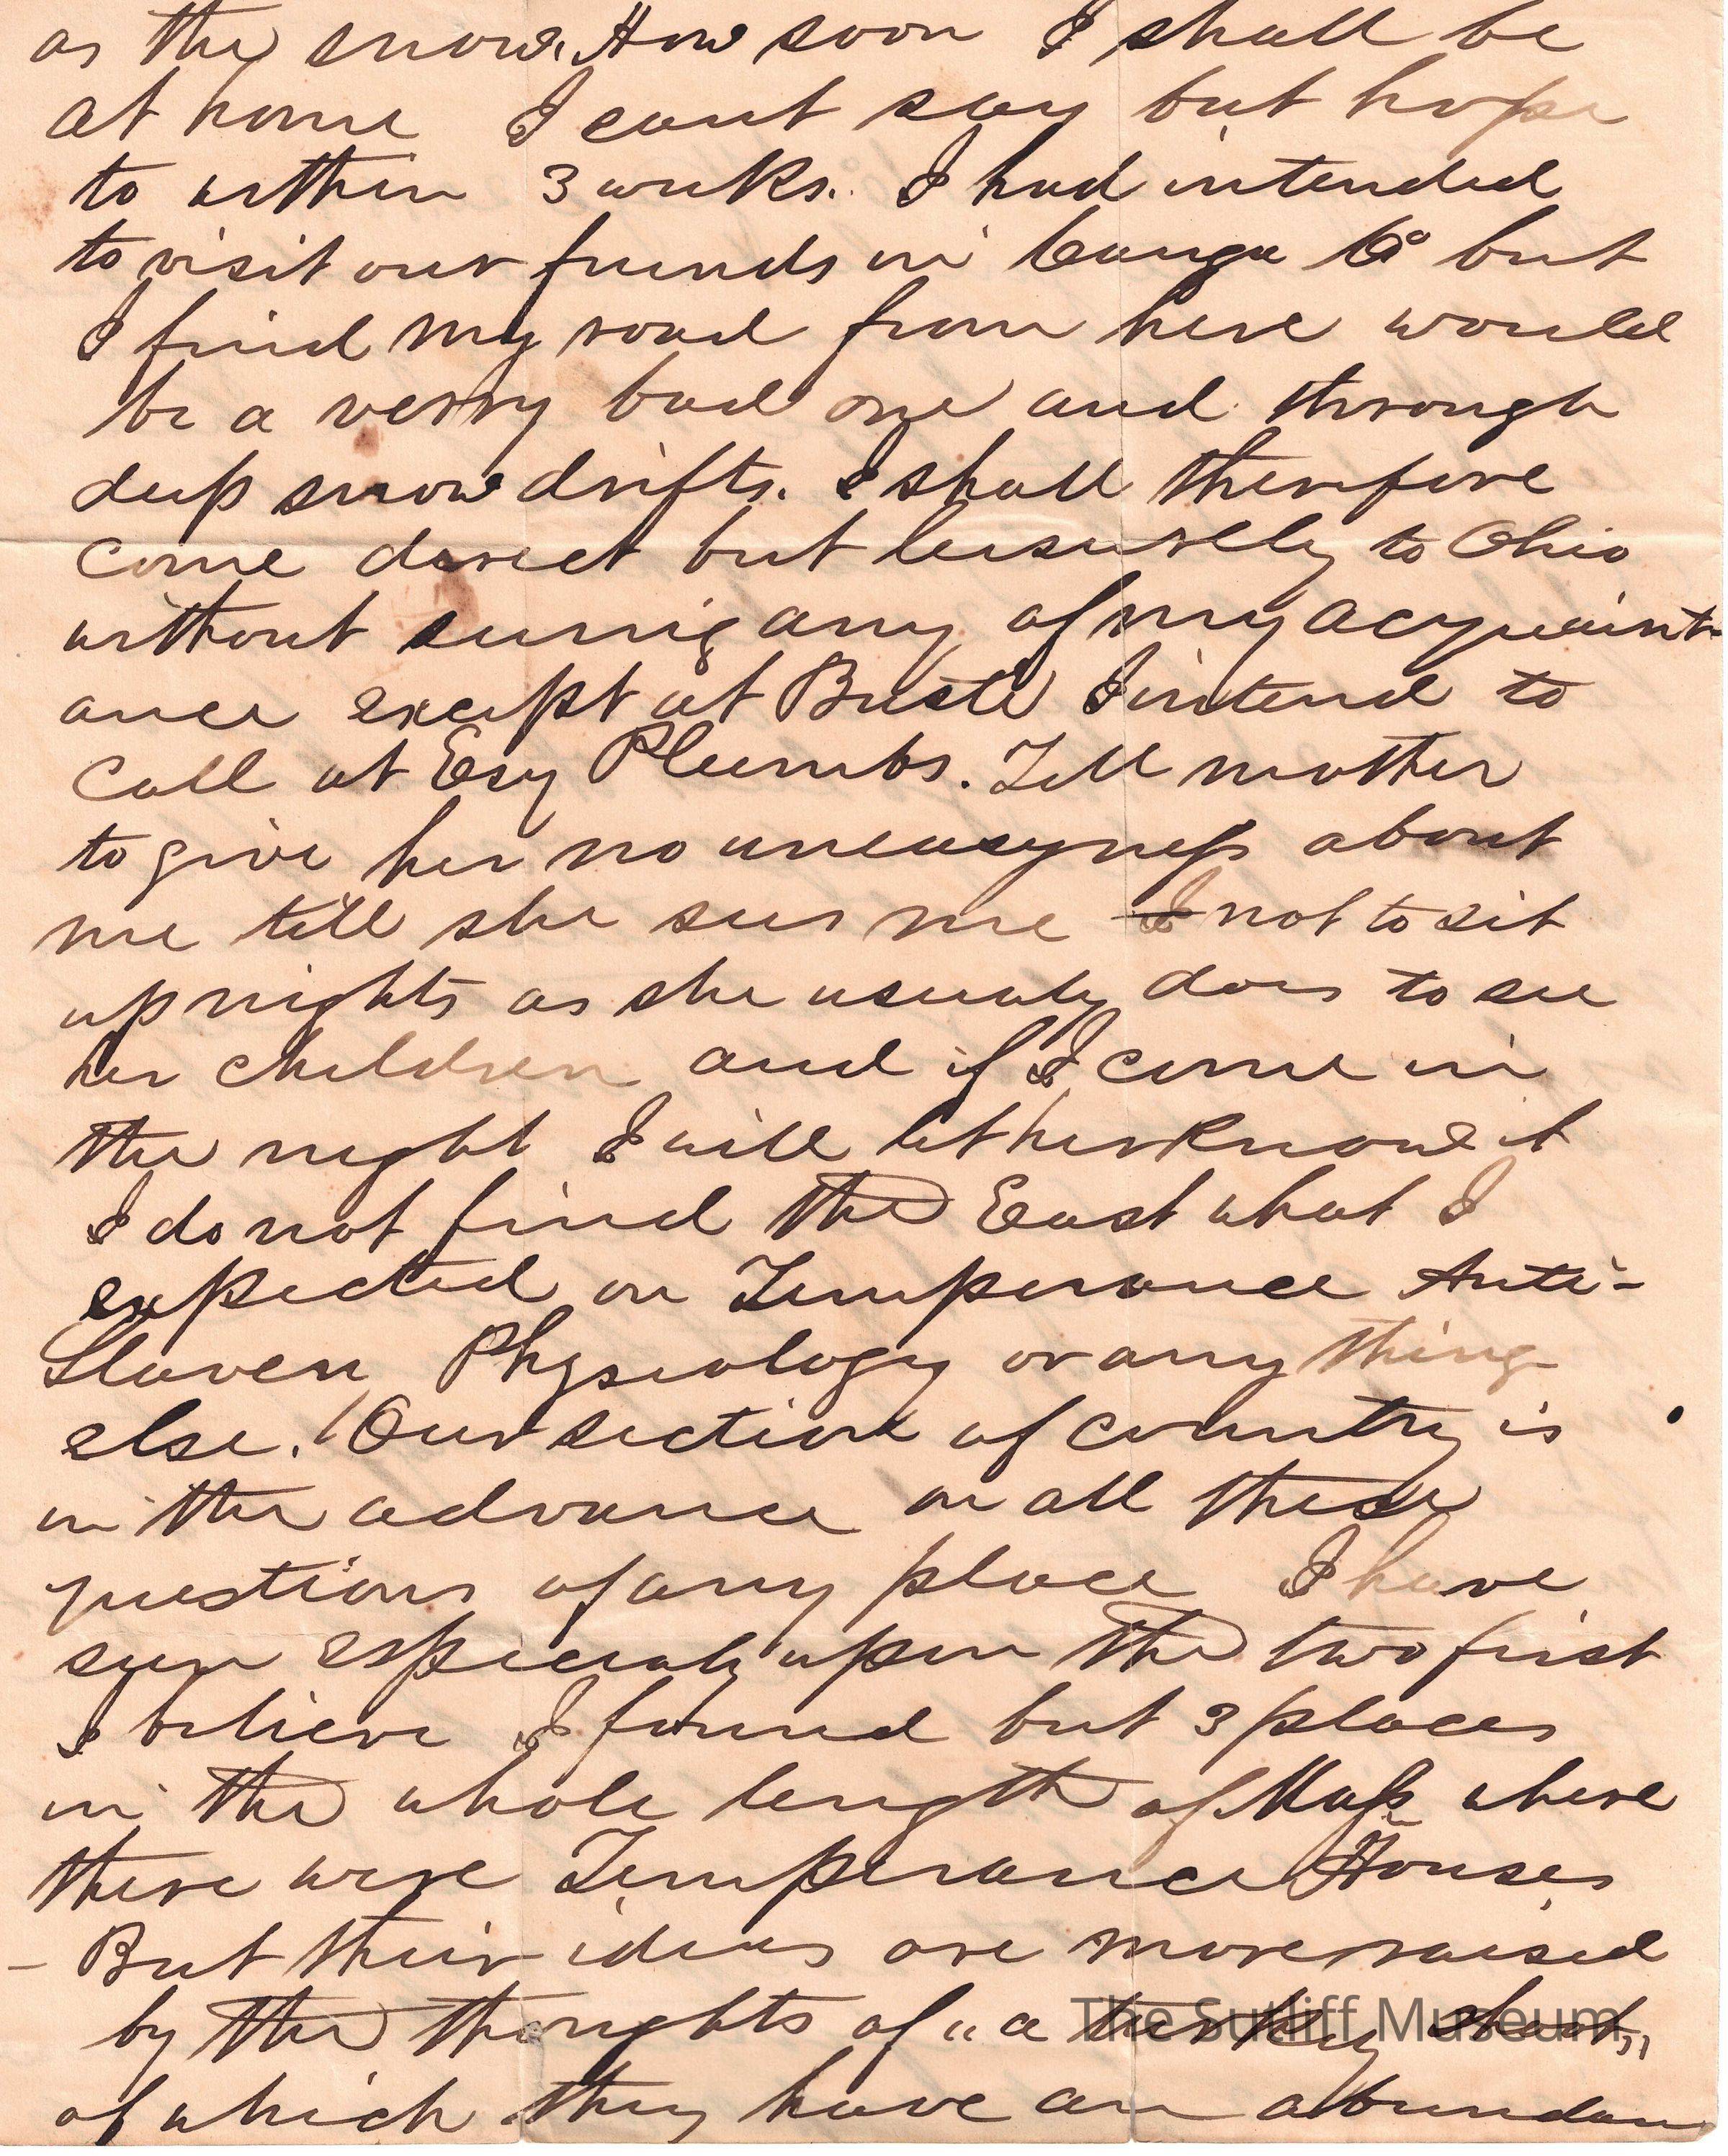 as the snow. How soon I shall be
at home I cant say but hope
to within 3 weeks. I had intended
to visit our friends in Cauga Co but
I find my road from here would
be a verry bad one and through
deep snow drifts. I shall therefore
come direct but leisurelly to Ohio
without seeing any of my acquaint-
ance except at Busti I intend to
call at Esq Plumbs. Tell mother
to give her no uneasyness about
me till she sees me I not to sit
up nights as she usualy does to see
her children and if I come in
the night I will let her know it
I do not find the East what I
expected on Temperance Anti-
Slavery Physiology or any thing
else. Our section of country is
in the advance on all these
questions of any place I have
seen especialy upon the two first
I believe I found but 3 places
in the whole length of Mass where
there were Temperance Houses
- But their ideas are more raised
by the thoughts of "a turkey shoot"
of which they have an abundan
The Sutliff Museum